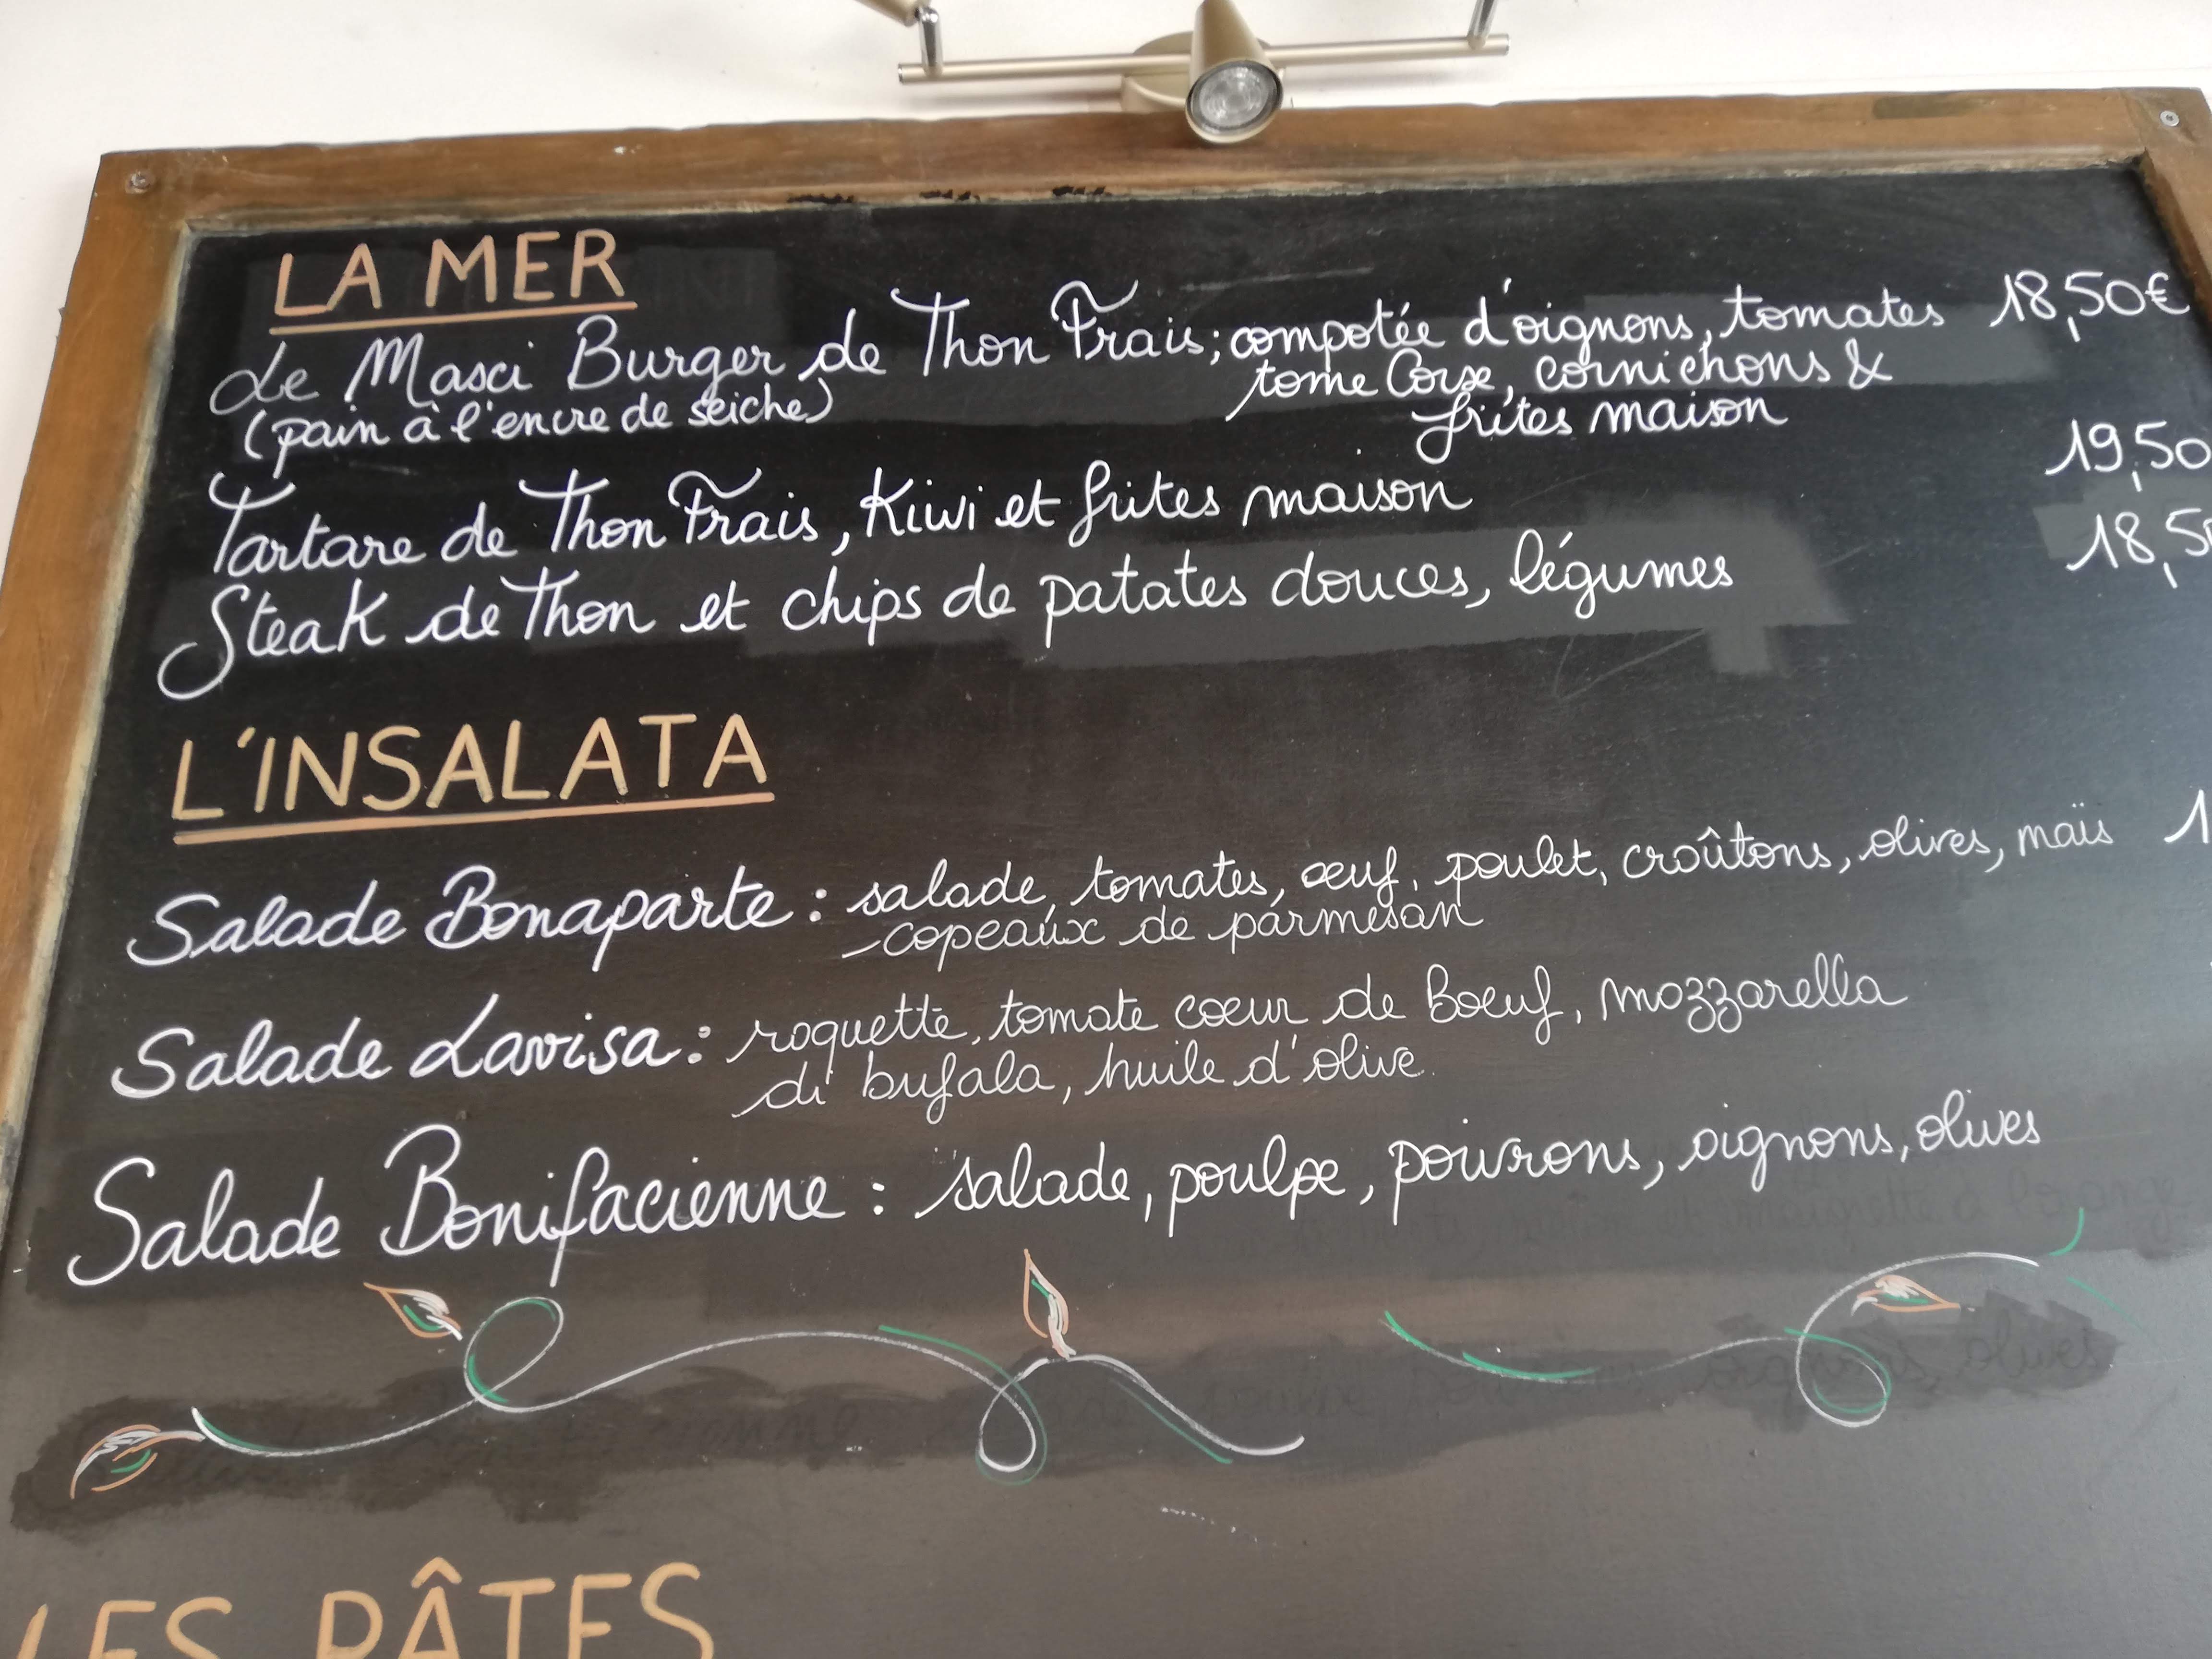 LA MER
Le Masci Burger de Thon Frais; compotée d'oignons, tomates 18,50€
(pain à l'encre de seiche) tome Corse, cornichons &
frites maison
Tartare de Thon Frais, Kiwi et frites maison 19,50
Steak de Thon et chips de patates douces, légumes 18,5
L'INSALATA
Salade Bonaparte : salade, tomates, œuf, poulet, croûtons, olives, maïs 1
copeaux de parmesan
Salade Lavisa : roquette, tomate cœur de Boeuf, mozzarella
di bufala, huile d'olive
Salade Bonifacienne : salade, poulpe, poivrons, oignons, olives
LES PÂTES